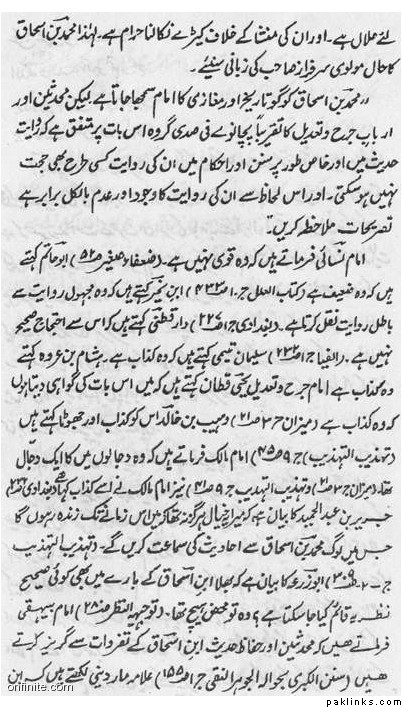 لئے حلال ہے۔ اور ان کی منشا کے خلاف کیڑے نکالنا حرام ہے۔ لہٰذا محمد بن اسحاق
کا حال مولوی سرفراز صاحب کی زبانی سنیئے۔
"محمد بن اسحاق کو گو تاریخ اور مغازی کا امام سمجھا جاتا ہے لیکن محدثین اور
ارباب جرح و تعدیل کا تقریباً پچانوے فی صدی گروہ اس بات پر متفق ہے کہ روایت
حدیث میں اور خاص طور پر سنن اور احکام میں ان کی روایت کسی طرح بھی حجت
نہیں ہو سکتی۔ اور اس لحاظ سے ان کی روایت کا وجود اور عدم بالکل برابر ہے
تصریحات ملاحظہ کریں۔
امام نسائی فرماتے ہیں کہ وہ قوی نہیں ہے۔ (ضعفاء صغیر ص ۵۲) ابو حاتم کہتے
ہیں کہ وہ ضعیف ہے (کتاب العلل ج ۱ ص ۴۳۳) ابن نمیر کہتے ہیں کہ وہ مجہول روایت سے
باطل روایت نقل کرتا ہے۔ (بغدادی ج ۱ ص ۲۲۷) دارقطنی کہتے ہیں کہ اس سے احتجاج صحیح
نہیں ہے۔ (ایضاً ج ۱ ص ۲۳۲) سلیمان تیمی کہتے ہیں کہ وہ کذاب ہے۔ ہشام بن عروہ کہتے
وہ کذاب ہے امام جرح و تعدیل یحییٰ قطان کہتے ہیں کہ میں اس بات کی گواہی دیتا ہوں
کہ وہ کذاب ہے (میزان ج ۳ ص ۲۱) وہیب بن خالد اس کو کذاب اور جھوٹا کہتے ہیں
(تہذیب التہذیب ج ۹ ص ۴۵) امام مالک فرماتے ہیں کہ وہ دجالوں میں کا ایک دجال
تھا (میزان ج ۳ ص ۲۱) و تہذیب التہذیب ج ۹ ص ۴۱) نیز امام مالک نے اسے کذاب کہا ہے (بغدادی ج ۱ ص ۲۳۲)
جریر بن عبد الحمید کا بیان ہے کہ میرا خیال ہرگز نہ تھا کہ میں اس زمانے تک زندہ رہوں گا
جس میں لوگ محمد بن اسحاق سے احادیث کی سماعت کریں گے۔ (تہذیب التہذیب
ج ۲ ص ۳۰۶) ابو زرعہ کا بیان ہے کہ بھلا ابن اسحاق کے بارے میں بھی کوئی صحیح
نظریہ قائم کیا جا سکتا ہے؟ وہ تو محض ہیچ تھا۔ (توجیہ النظر ص ۲۸۰) امام بیہقی
فرماتے ھیں کہ محدثین اور حفاظ حدیث ابن اسحاق کے تفردات سے گریز کرتے
ھیں (سنن الکبریٰ بحوالہ الجوہر النقی ج ۱ ص ۱۵۵) علامہ ماردینی لکھتے ہیں کہ ابن
onfinite.com
paklinks.com